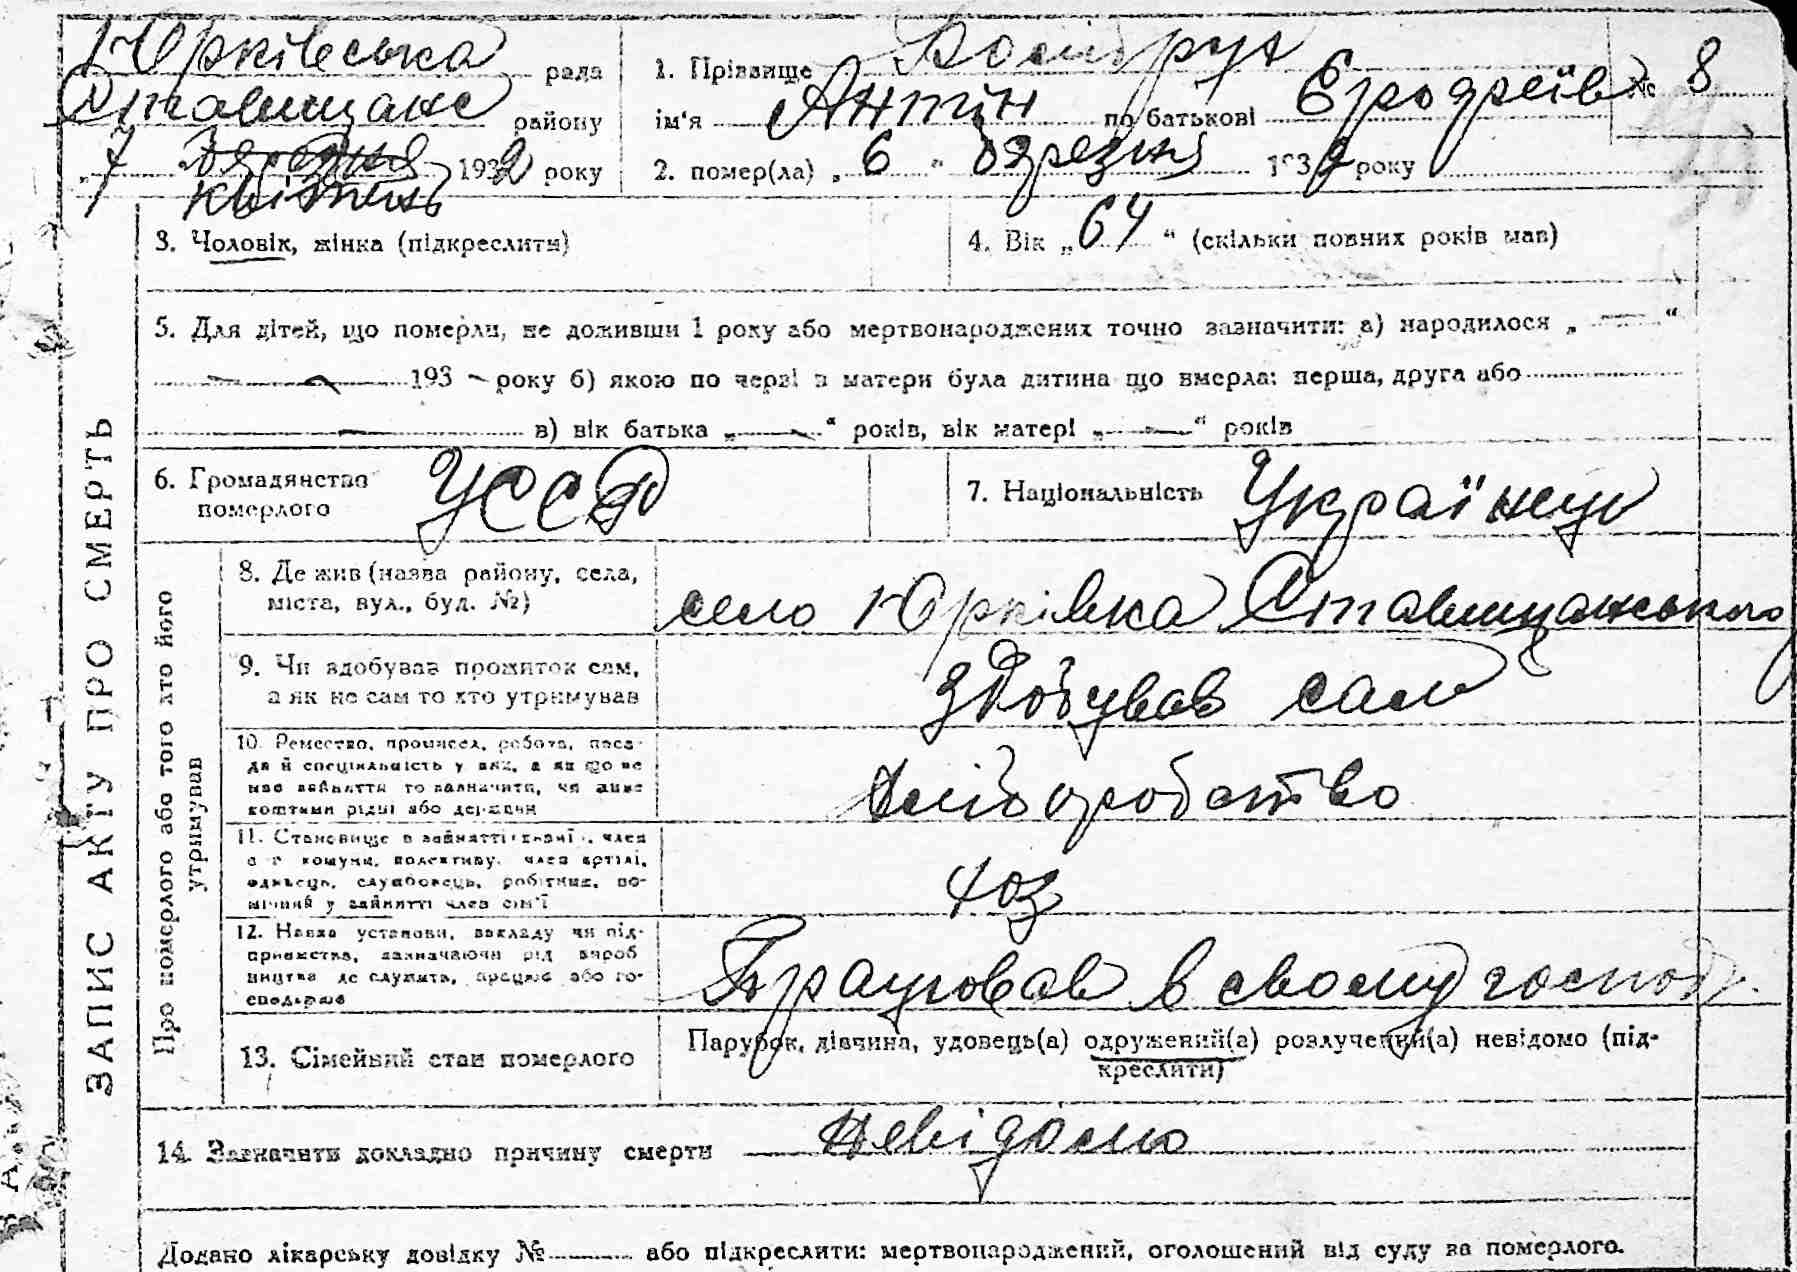 Юрківська рада
Ставищанс району
„7 березня 1932 року
квітень
1. Прізвище
ім'я Антін по батькові № 8
2. помер(ла) „6 " березня 1932 року
3. Чоловік, жінка (підкреслити)
4. Вік „64 " (скільки повних років мав)
5. Для дітей, що померли, не доживши 1 року або мертвонароджених точно зазначити: а) народилося „ — "
— 193 — року б) якою по черзі в матери була дитина що вмерла: перша, друга або
— в) вік батька „ — " років, вік матері „ — " років
6. Громадянство
померлого
УССР
7. Національність Українець
ЗАПИС АКТУ ПРО СМЕРТЬ
Про померлого або того хто його
утримував
8. Де жив (назва району, села,
міста, вул., буд. №)
село Юрківка Ставищанського
9. Чи здобував прожиток сам,
а як не сам то хто утримував
здобував сам
10. Ремество, промисел, робота, поса-
да й спеціяльність у них, а як що не
має заняття то зазначити, чи живе
коштами рідні або держави
хліборобство
11. Становище в занятті член
комуни, колективу, член артілі,
одинець, службовець, робітник, по-
мічний у занятті член сім'ї
12. Назва установи, закладу чи під-
приємства, зазначаючи рід вироб
ництва де служить, працює або го-
сподарює
Працював в своєму господ.
13. Сімейний стан померлого
Парубок, дівчина, удовець(а) одружений(а) розлучений(а) невідомо (під-
креслити)
14. Зазначити докладно причину смерти невідомо
Додано лікарську довідку № або підкреслити: мертвонароджений, оголошений від суду за померлого.